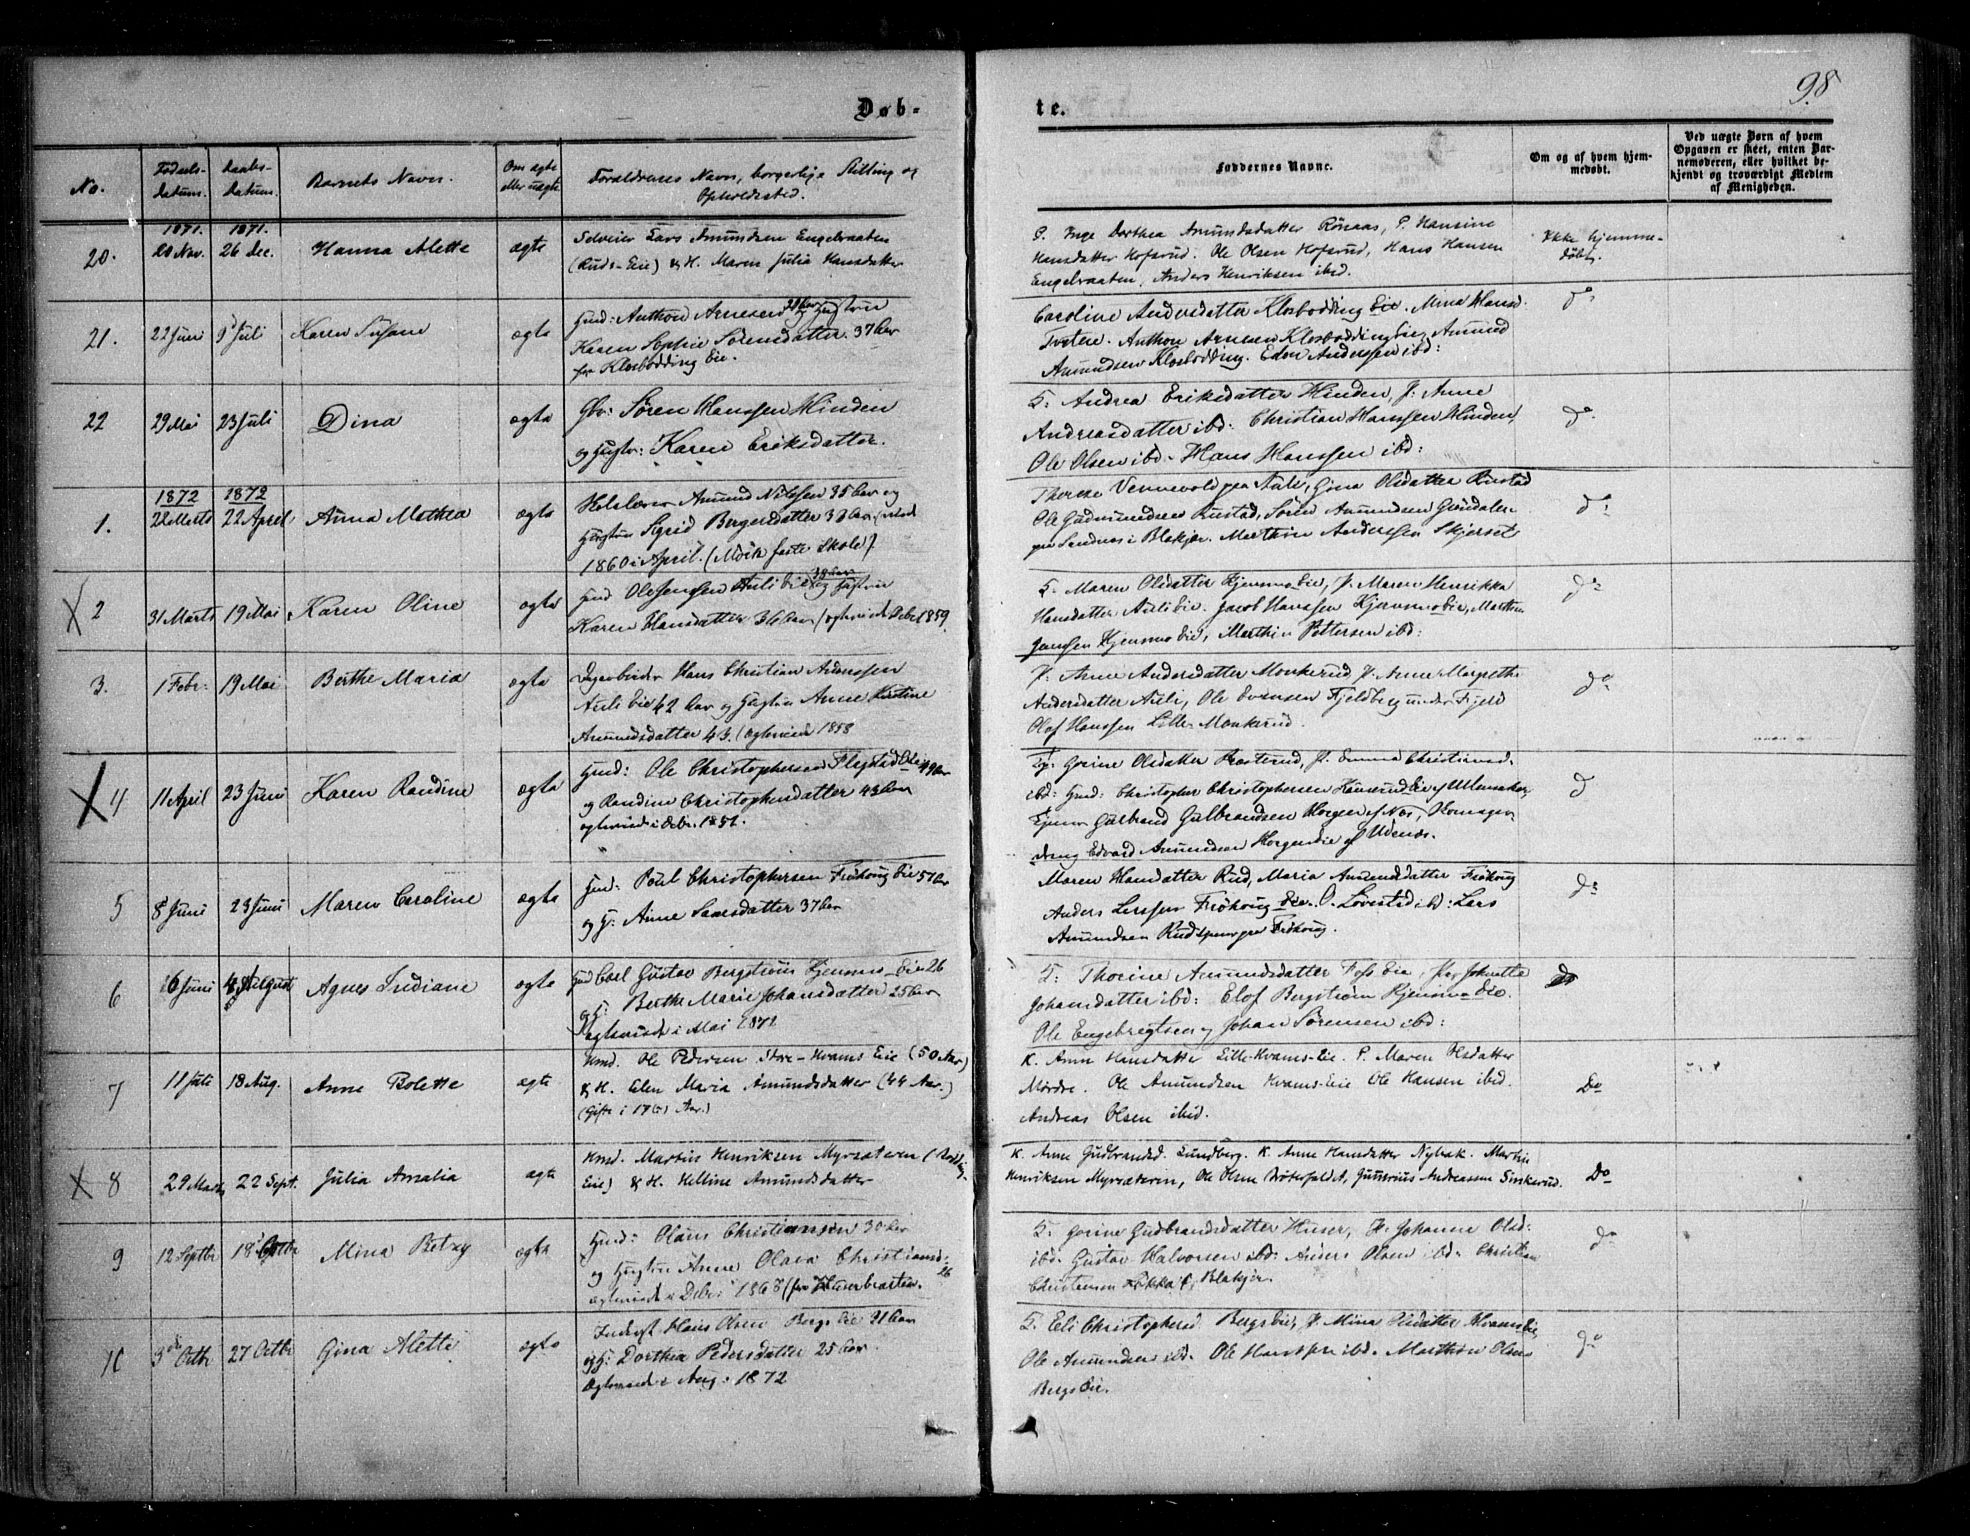 98
Døb-
te.
No.
Fødsels-
datum.
Daabs-
datum.
Barnets Navn.
Om ægte
eller uægte
Forældrenes Navn, borgerlige Stilling og
Opholdssted.
Faddernes Navne.
Om og af hvem hjem-
medøbt.
Ved uægte Børn af hvem
Opgaven er skeet, enten Bar-
nemoderen, eller hvilket be-
kjendt og troværdigt Medlem
af Menigheden.
1871. 1871.
20. 20 Nov. 26 Dec. Hanna Alette ægte
Selveier Lars Amundsen Engelraaten
(Ruds-Eie) & H. Maren Julia Hansdatter
P. Inge Dorthea Amundsdatter Rönaas, P. Hansine
Hansdatter Hofsrud. Ole Olsen Hofsrud, Hans Hansen
Engelraaten, Anders Henriksen ibid.
Ikke hjemme-
døbt.
21. 22 Juni 9 Juli Karen Susane ægte
Hmd: Anthon Arnesen og Hustru
Karen Sophie Sörensdatter 37 Aar
fra Klosbødding Eie.
Caroline Andersdatter Klosbødding Eie. Mina Hansd.
Tvetene. Anthon Arnesen Klosbødding Eie, Amund
Amundsen Klosbødding. Eden Anderssen ibd:
do
22 29 Mai 23 Juli Dina ægte
Gbr: Sören Hanssen Hinden
og Hustr: Karen Eriksdatter.
K: Andrea Eriksdatter Hinden, P: Anne
Andreasdatter ibd: Christian Hanssen Hinden,
Ole Olsen ibd. Hans Hanssen ibd:
do
1872 1872
1. 22 April Anna Mathea ægte
Amund Nilssen 35 Aar og
Hustru Sigrid Bergersdatter
1860 i April. (Mork faste Skole)
Therese Vennevold paa Auli, Gina Olsdatter Rustad
Ole Gudmundsen Rustad, Sören Amundsen
paa Sandnes i Blakjer. Marthin Anderssen Skjerset
do
2 31 Marts 19 Mai Karen Oline ægte
Hmd Ole Jenssen Auli Eie og Hustru
Karen Hansdatter 36 Aar (ægteviede Debr 1859.
K. Maren Olsdatter Hjemmo Eie, P. Maren Henrikka
Hansdatter Auli Eie. Jacob Hanssen Hjemmo Eie, Marthin
Janssen Hjemmo Eie, Marthin Pettersen ibd:
do
3. 1 Febr: 19 Mai Berthe Maria ægte
Hans Christian Anderssen
Auli Eie 42 Aar og Hustru Anne Kirstine
Amundsdatter 43. (ægteviede 1858
P. Anne Andersdatter Monkerud P. Anne Margrethe
Andersdatter Auli, Ole Svensen Fjeldberg under Fjeld
Olof Hanssen Lille-Monkerud.
do
4 11 April 23 Juni Karen Randine ægte
Hmd: Ole Christophersen Flegstad Eie 49 Aar
og Randine Christophersdatter 43 Aar
ægteviede i Debr. 1851.
Gorine Olsdatter Prosterud, P. Emma Christiansd.
ibd: Hmd: Christopher Christophersen Eie af Ullensaker,
Gulbrand Gulbrandsen Horgen af Næs,
dreng Edvard Amundsen Horgen Eie af Udenæs.
do
5 8 Juni 23 Juni Maren Caroline ægte
Hmd: Poul Christophersen Fröhoug Eie 57 Aar
og H: Anne Larsdatter 37 Aar
Maren Hansdatter Rud, Maria Amundsdatter Fröhoug
Anders Larssen Fröhoug Eie. O. Lövestad ibd: Lars
Amundsen Fröhoug.
do
6 16 Juni 4 August Agnes Indiane ægte
Hmd Carl Gustav Bergström Hjemmo Eie 26
og H: Berthe Marie Johansdatter 25 Aar
ægteviede i Mai 1871
K: Thorine Amundsdatter Foss Eie, Johnette
Johansdatter ibd: Elof Bergström Hjemmo Eie.
Ole Engebregtsen og Johan Sörensen ibd:
do
7 11 Juli 18 Aug. Anne Bolette ægte
Hmd. Ole Pedersen Store-Kvams Eie (50 Aar)
& H. Elen Maria Amundsdatter (44 Aar.)
K. Anne Hansdatter Lille-Kvams-Eie. P. Maren Olsdatter
Mördre. Ole Amundsen Kvams-Eie Ole Hansen ibid.
Andreas Olsen ibid.
Do
8 29 Marts 22 Sept. Julia Amalia ægte
Hmd. Martius Henriksen Myrsæteren
Eie) & H. Helline Amundsdatter
K. Anne Gudbrandsd. Lundberg. K. Anne Hansdatter Nybak. Martin
Henriksen Myrsæteren, Ole Olsen, Andreassen
Do
9 12 Septbr 18 Mina Betzy ægte
Hmd: Olaus Christiansen 30 Aar
og Hustru Anne Olava Christiansd. 26
ægteviede i Debr 1868
K. Gorine Gudbrandsdatter Huser, P. Johanne Olsd:
ibd. Gustav Halvorsen ibd: Anders Olsen ibd: Christian
Christensen Blakjer.
do
10 3die Octbr 27 Octbr Gina Alette ægte
Hans Olsen Bergs Eie 31 Aar
og H: Dorthea Pedersdatter 25 Aar.
ægteviede i Aug: 1872
K. Eli Christophersd Bergs Eie, P. Mina Kvams Eie
Ole Amundsen ibd. ibd. Marthin Olsen
Bergs Eie.
do